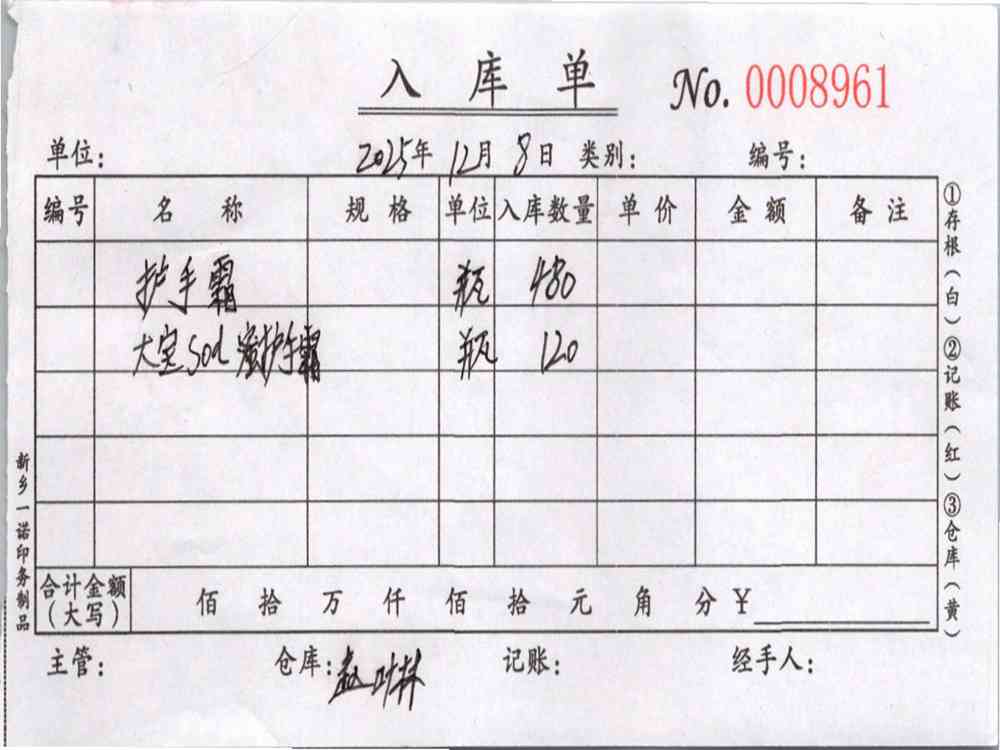 入库单 No. 0008961
单位： 2025年 12月 8日 类别： 编号：
编号 名称 规格 单位 入库数量 单价 金额 备注
护手霜 瓶 480
大宝 sod 蜜护手霜 瓶 120
合计金额（大写） 佰 拾 万 仟 佰 拾 元 角 分 ¥
主管： 仓库： 记账： 经手人：
①存根（白）②记账（红）③仓库（黄）
新乡一诺印务制品